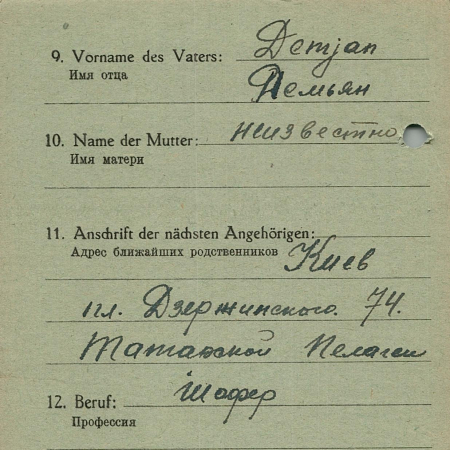 9. Vorname des Vaters: Demjan
Имя отца
Демьян
10. Name der Mutter: неизвестно
Имя матери
11. Anschrift der nächsten Angehörigen:
Адрес ближайших родственников Киев
пл. Дзержинского. 74.
Пелагеи
12. Beruf: Шофер
Профессия